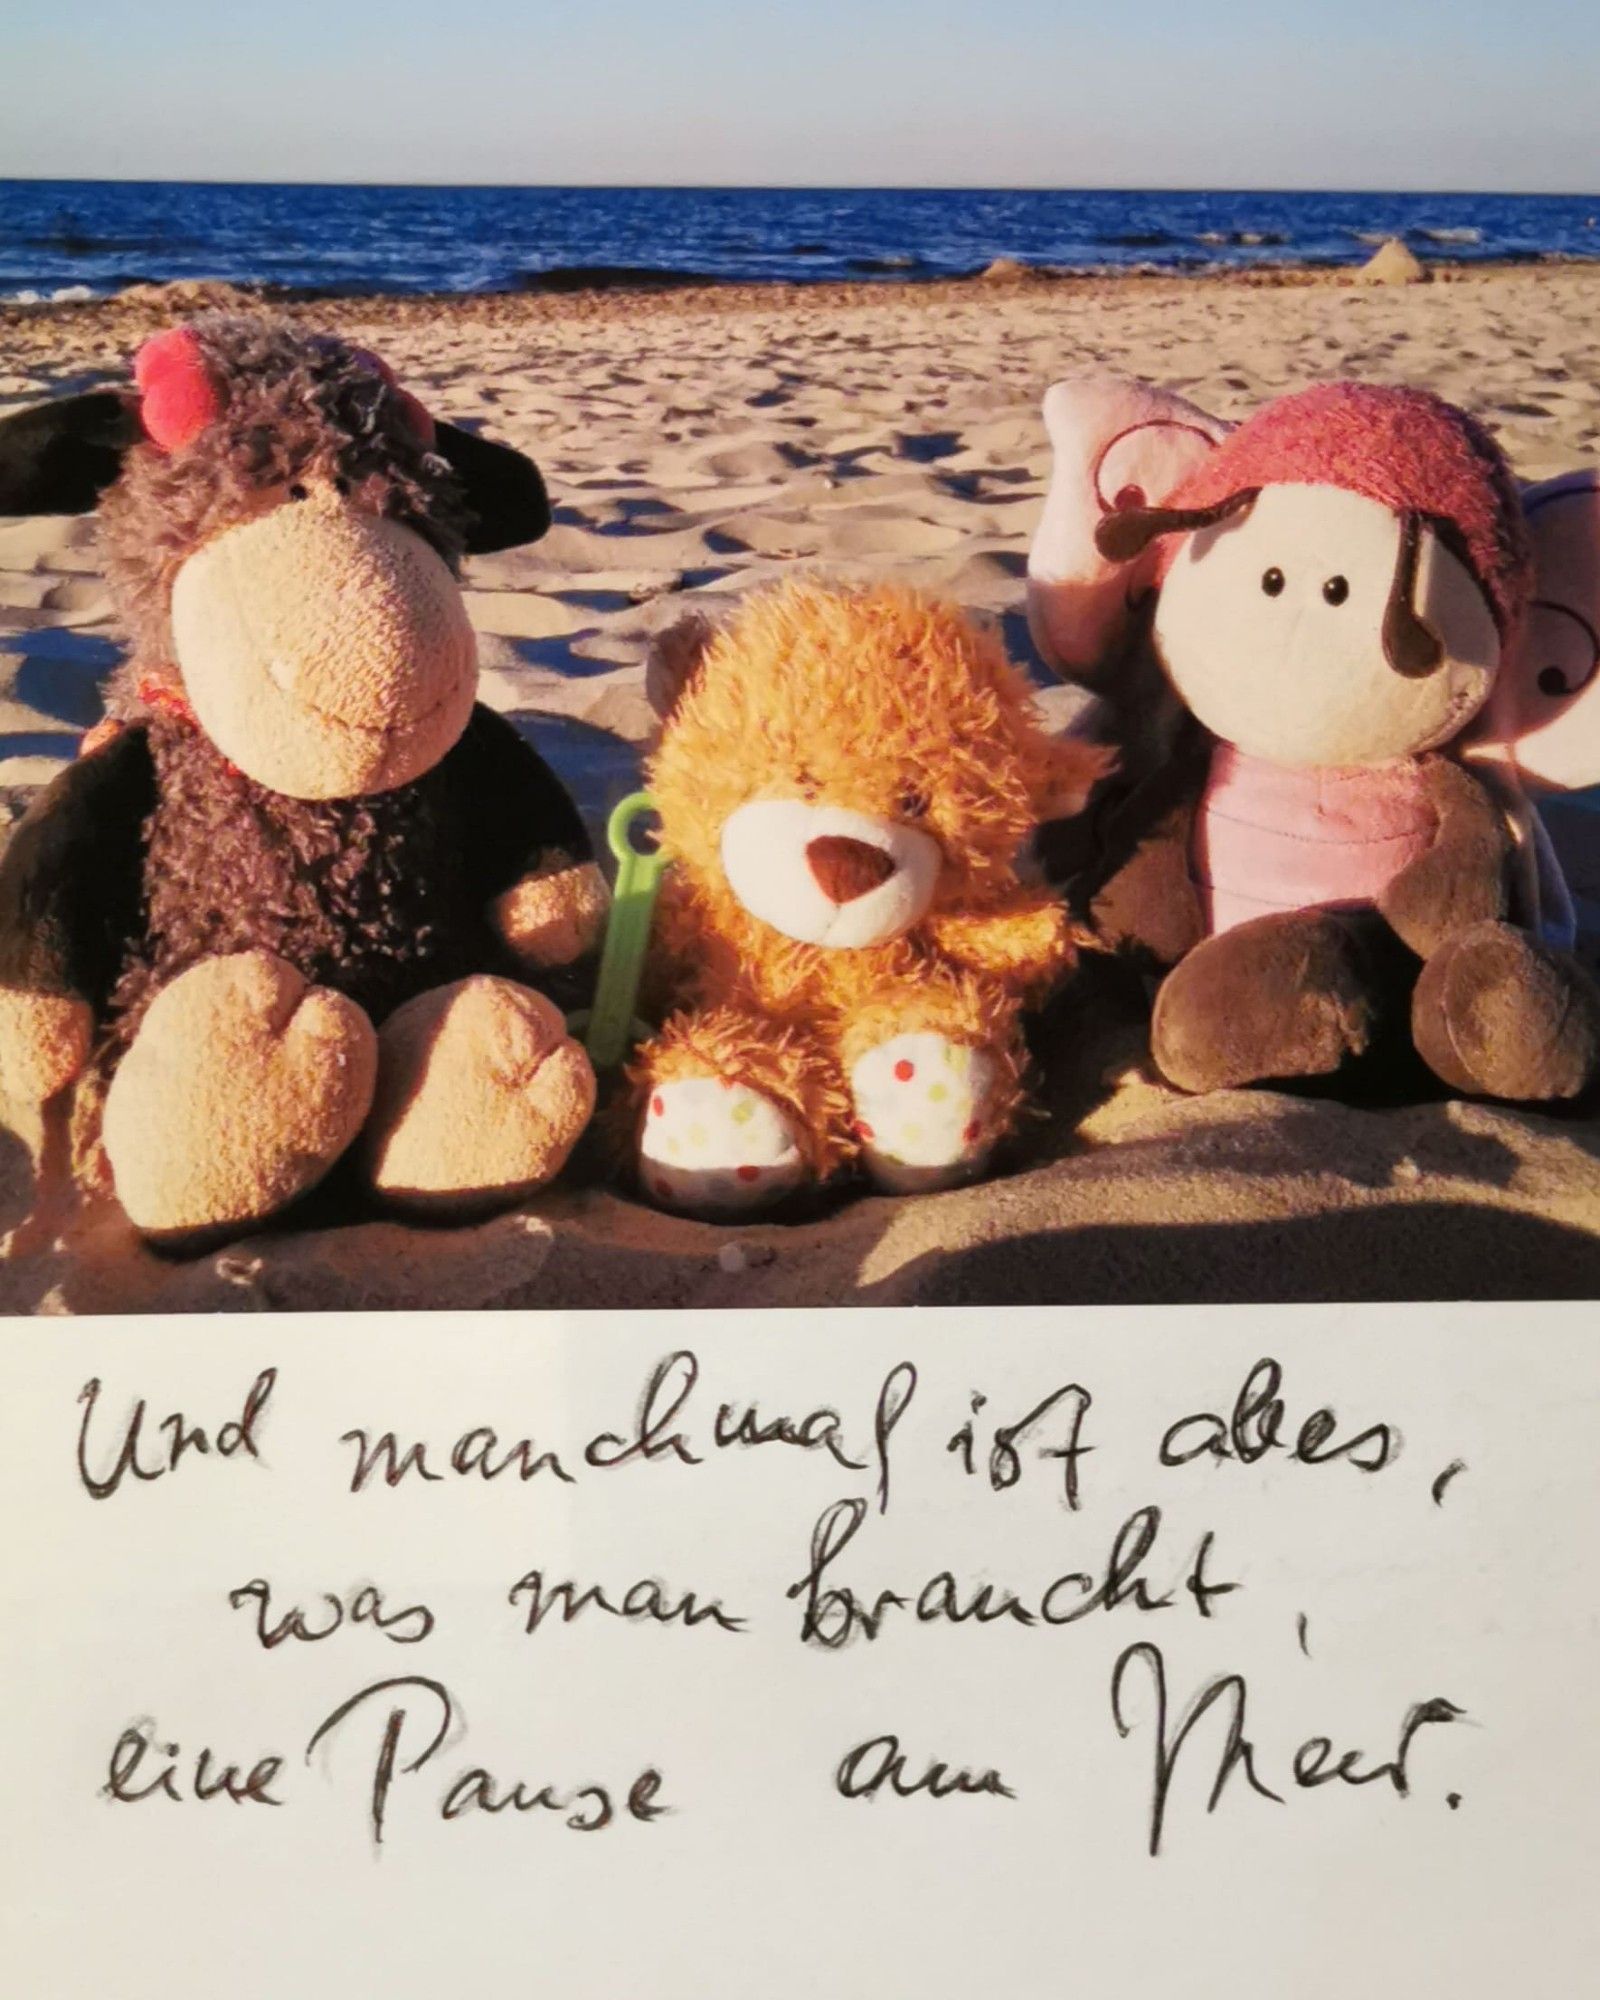 Und manchmal ist alles,
was man braucht,
eine Pause am Meer.